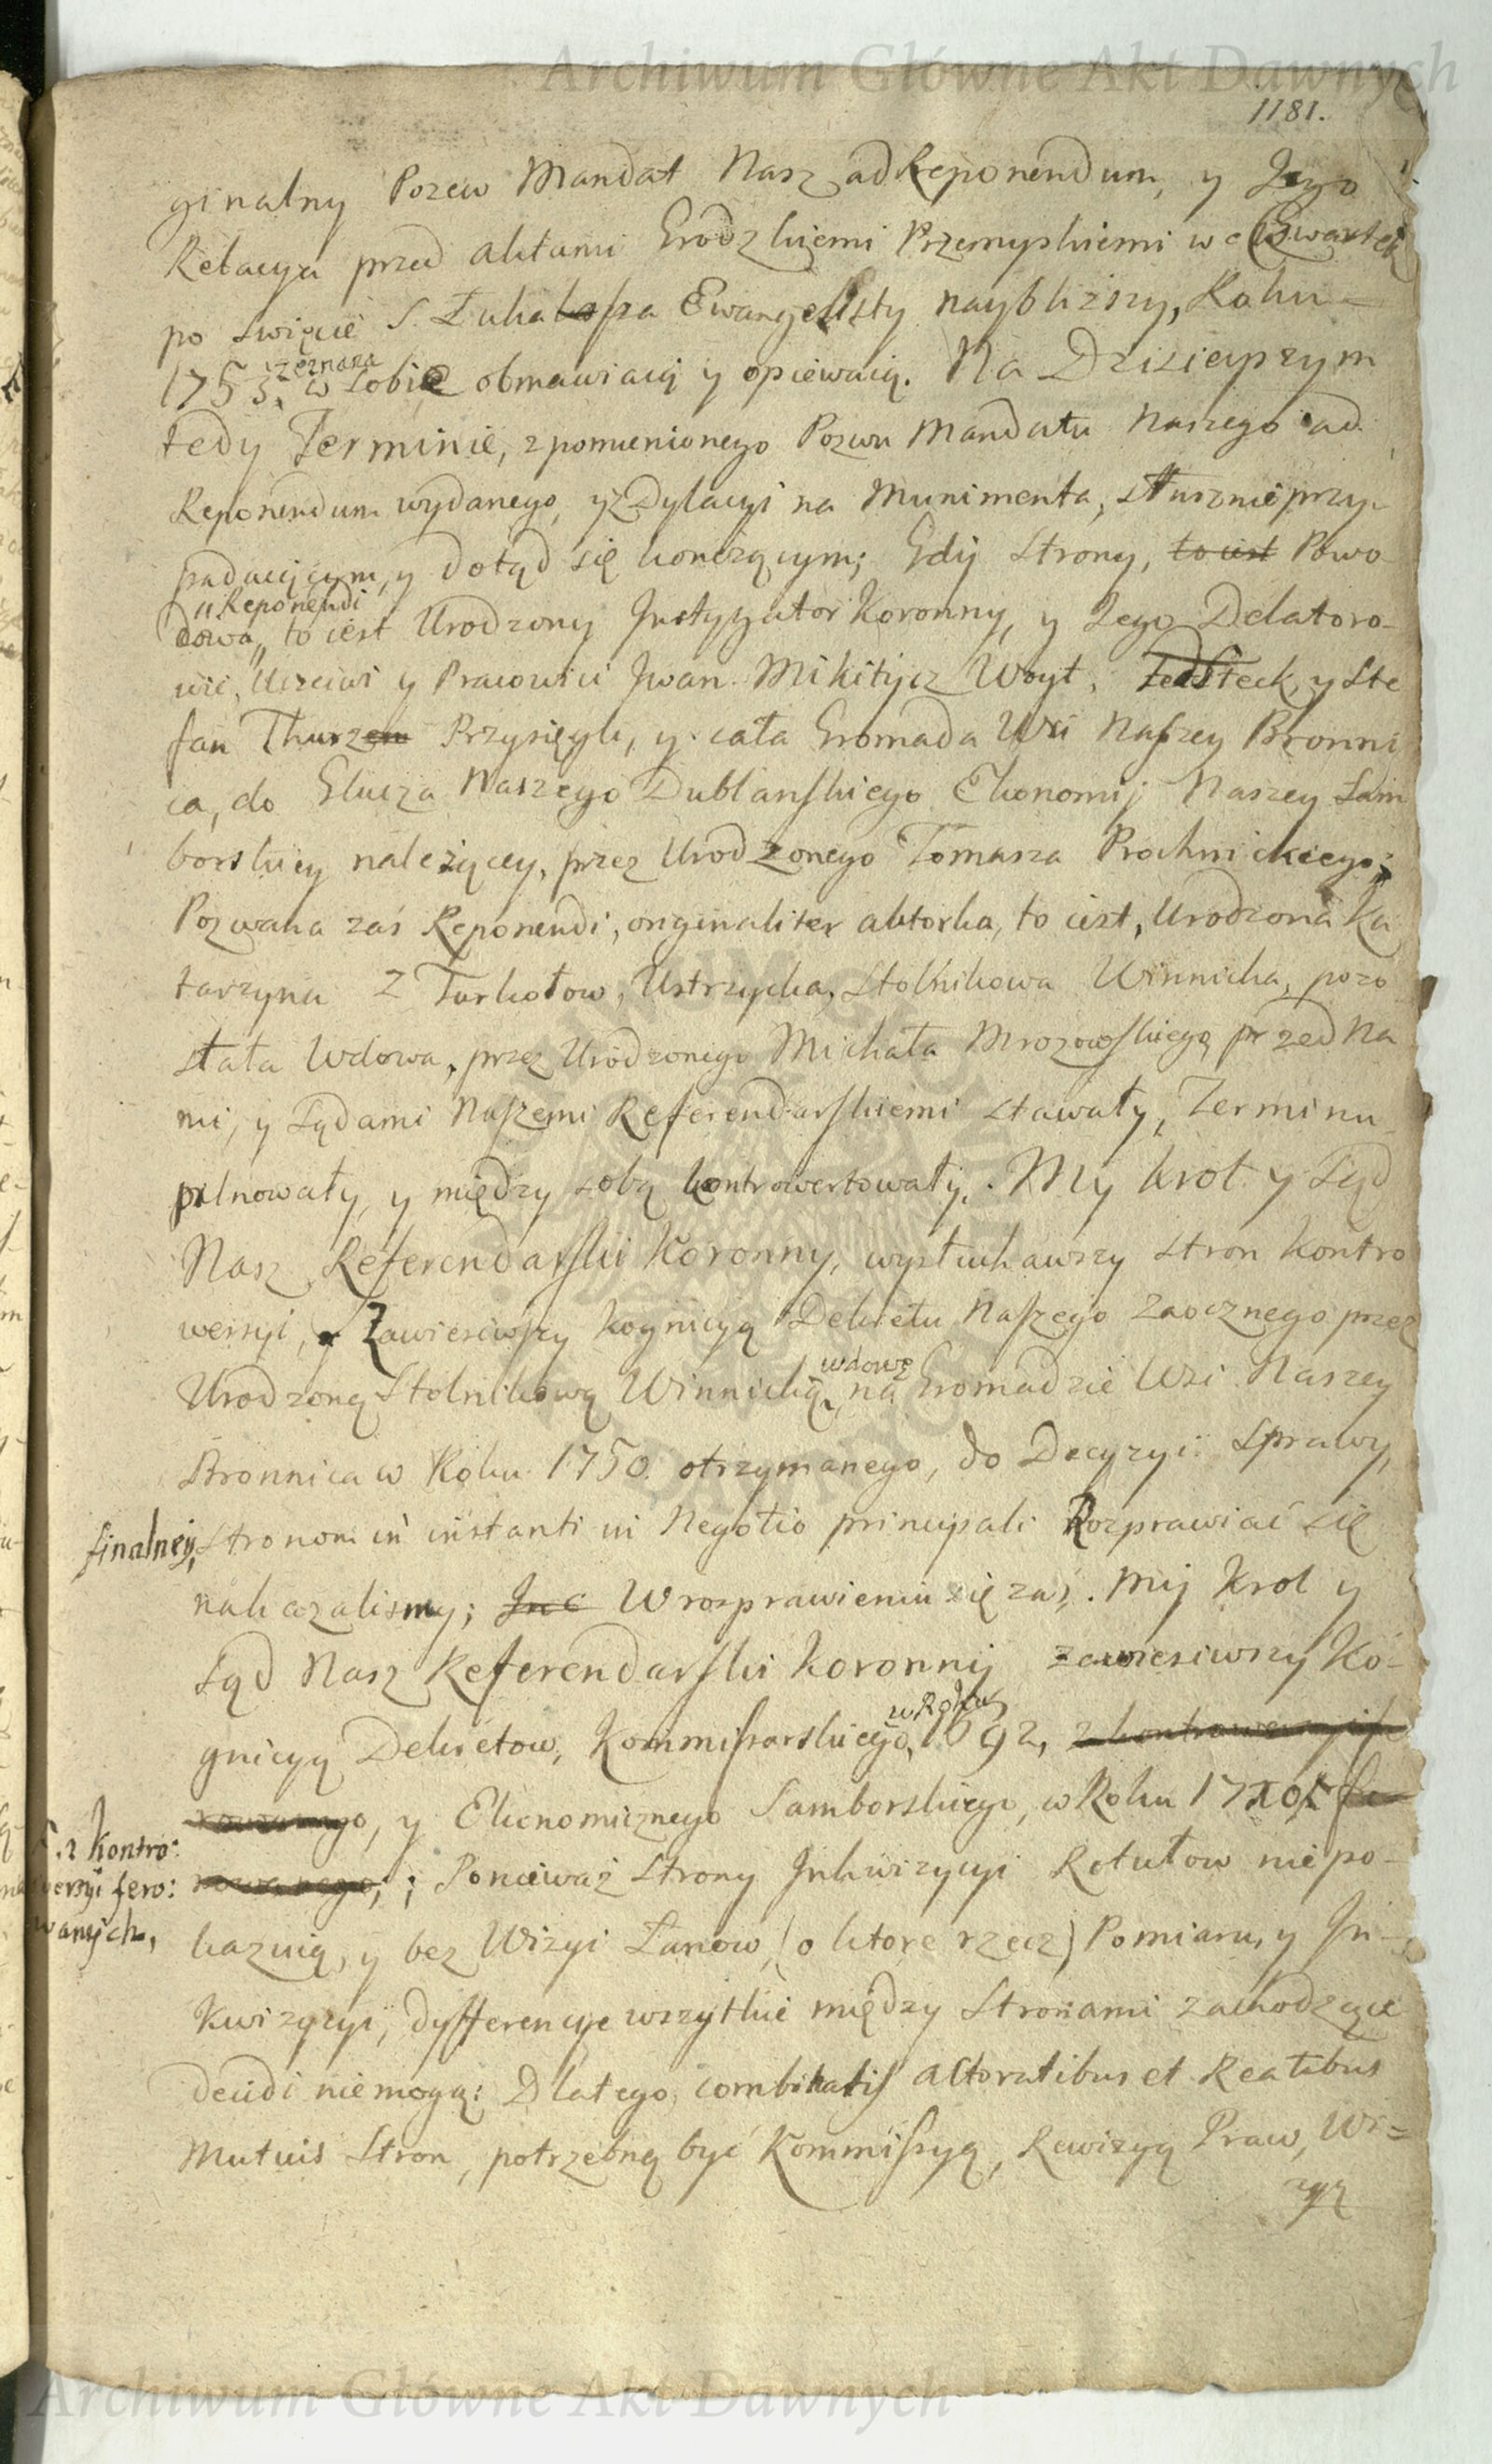 Archiwum Główne Akt Dawnych
1181.
ginalny Pozew Mandat Nasz ad Reponendum, y Jego
Relacya przed Aktami Grodzkiemi Przemyskiemi we Czwartek
po Swięcie S. Łukasza Ewangelisty naybliższy, Roku
1753. zeznana w sobie obmawiaią y opiewaią. Na Dzisieyszym
tedy Terminie, z pomienionego Pozwu Mandatu Naszego ad
Reponendum wydanego, y z Dylacyi na Munimenta, słusznie przy-
padaiącym, y dotąd się kończącym; Gdy Strony, to iest Powo
dowa Reponendi to iest Urodzony Instygator Koronny, y Jego Delatoro-
wie, Uczciwi y Pracowici Jwan Mikitycz Woyt, Steck, y Ste
fan Thurz Przysięgli, y cała Gromada Wsi Naszey Bronni
ca, do Klucza Naszego Dublanskiego Ekonomij Naszey Sam
borskiey należącey, przez Urodzonego Tomasza Prochnickiego;
Pozwana zaś Reponendi, originaliter aktorka, to iest, Urodzona Ka
tarzyna Z Turkołow, Ustrzycka, Stolnikowa Winnicka, pozo
stała Wdowa, przez Urodzonego Michała Mrozowskiego przed Na
mi, y Sądami Naszemi Referendarskiemi stawały, Terminu
pilnowały, y między sobą kontrowertowały. My Krol y Sąd
Nasz Referendarski Koronny, wysłuchawszy stron kontro
wersyi, Zawiesiwszy kognicyą Dekretu Naszego Zaocznego przez
Urodzoną Stolnikową Winnicką wdowę na Gromadzie Wsi Naszey
Bronnica w Roku 1750. otrzymanego, do Decyzyi Sprawy,
finalney, Stronom in instanti in Negotio principali Rozprawiać się
nakazalismy; W rozprawieniu się zaś. My Krol y
Sąd Nasz Referendarski Koronny zawiesiwszy Ko-
gnicyą Dekretow, Kommissarskiego, w Roku 1692,
y Ekonomicznego Samborskiego, w Roku 1705
z kontro:
wersyi fero:
wanych,
; Ponieważ Strony Inkwizycyi Rotułow nie po-
kazuią, y bez Wizyi Łanow, (o ktore rzecz) Pomiaru, y In-
kwizycyi, dyfferencye wszytkie między Stronami zachodzące
decidi nie mogą: Dlatego, combinatis Actoratibus et Reatibus
Mutuis Stron, potrzebną być Kommissyą, Rewizyą Praw, Wi=
zyą
Archiwum Główne Akt Dawnych